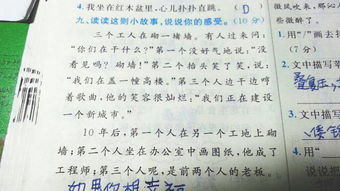 4.我坐在红木盆里,心儿扑扑直跳。 (D)
九、读读这则小故事,说说你的感受。(10分)
三个工人在砌一堵墙。有人过来问:
“你们在干什么?”第一个没好气地说:“没
看见吗?砌墙!”第二个抬头笑了笑,说:
“我们在盖一幢高楼。”第三个人边干边哼
着歌曲,他的笑容很灿烂:“我们正在建设
一个新城市。”
10年后,第一个人在另一个工地上砌
墙;第二个人坐在办公室中画图纸,他成了
工程师;第三个人呢,是前两个人的老板。
如果你想幸福
微风吹来,那
些微醉了。
2.用“/”画去
(7分)
文中描写
3.文中描写
4.用“
说说把